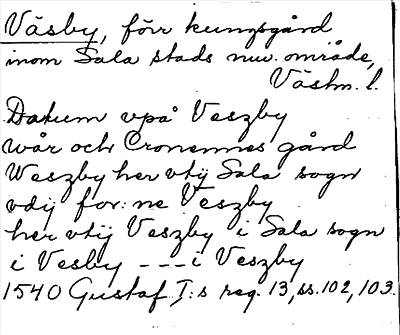 Väsby, förr kungsgård
inom Sala stads nuv. område,
Västm. l.
Datum vpå Veszby
wår och Cronennes gård
Weszby her vtij Sala sogn
vdij for:ne Veszby
her vtij Veszby i Sala sogn
i Vesby --- i Veszby
1540 Gustaf I:s reg. 13, ss. 102, 103.